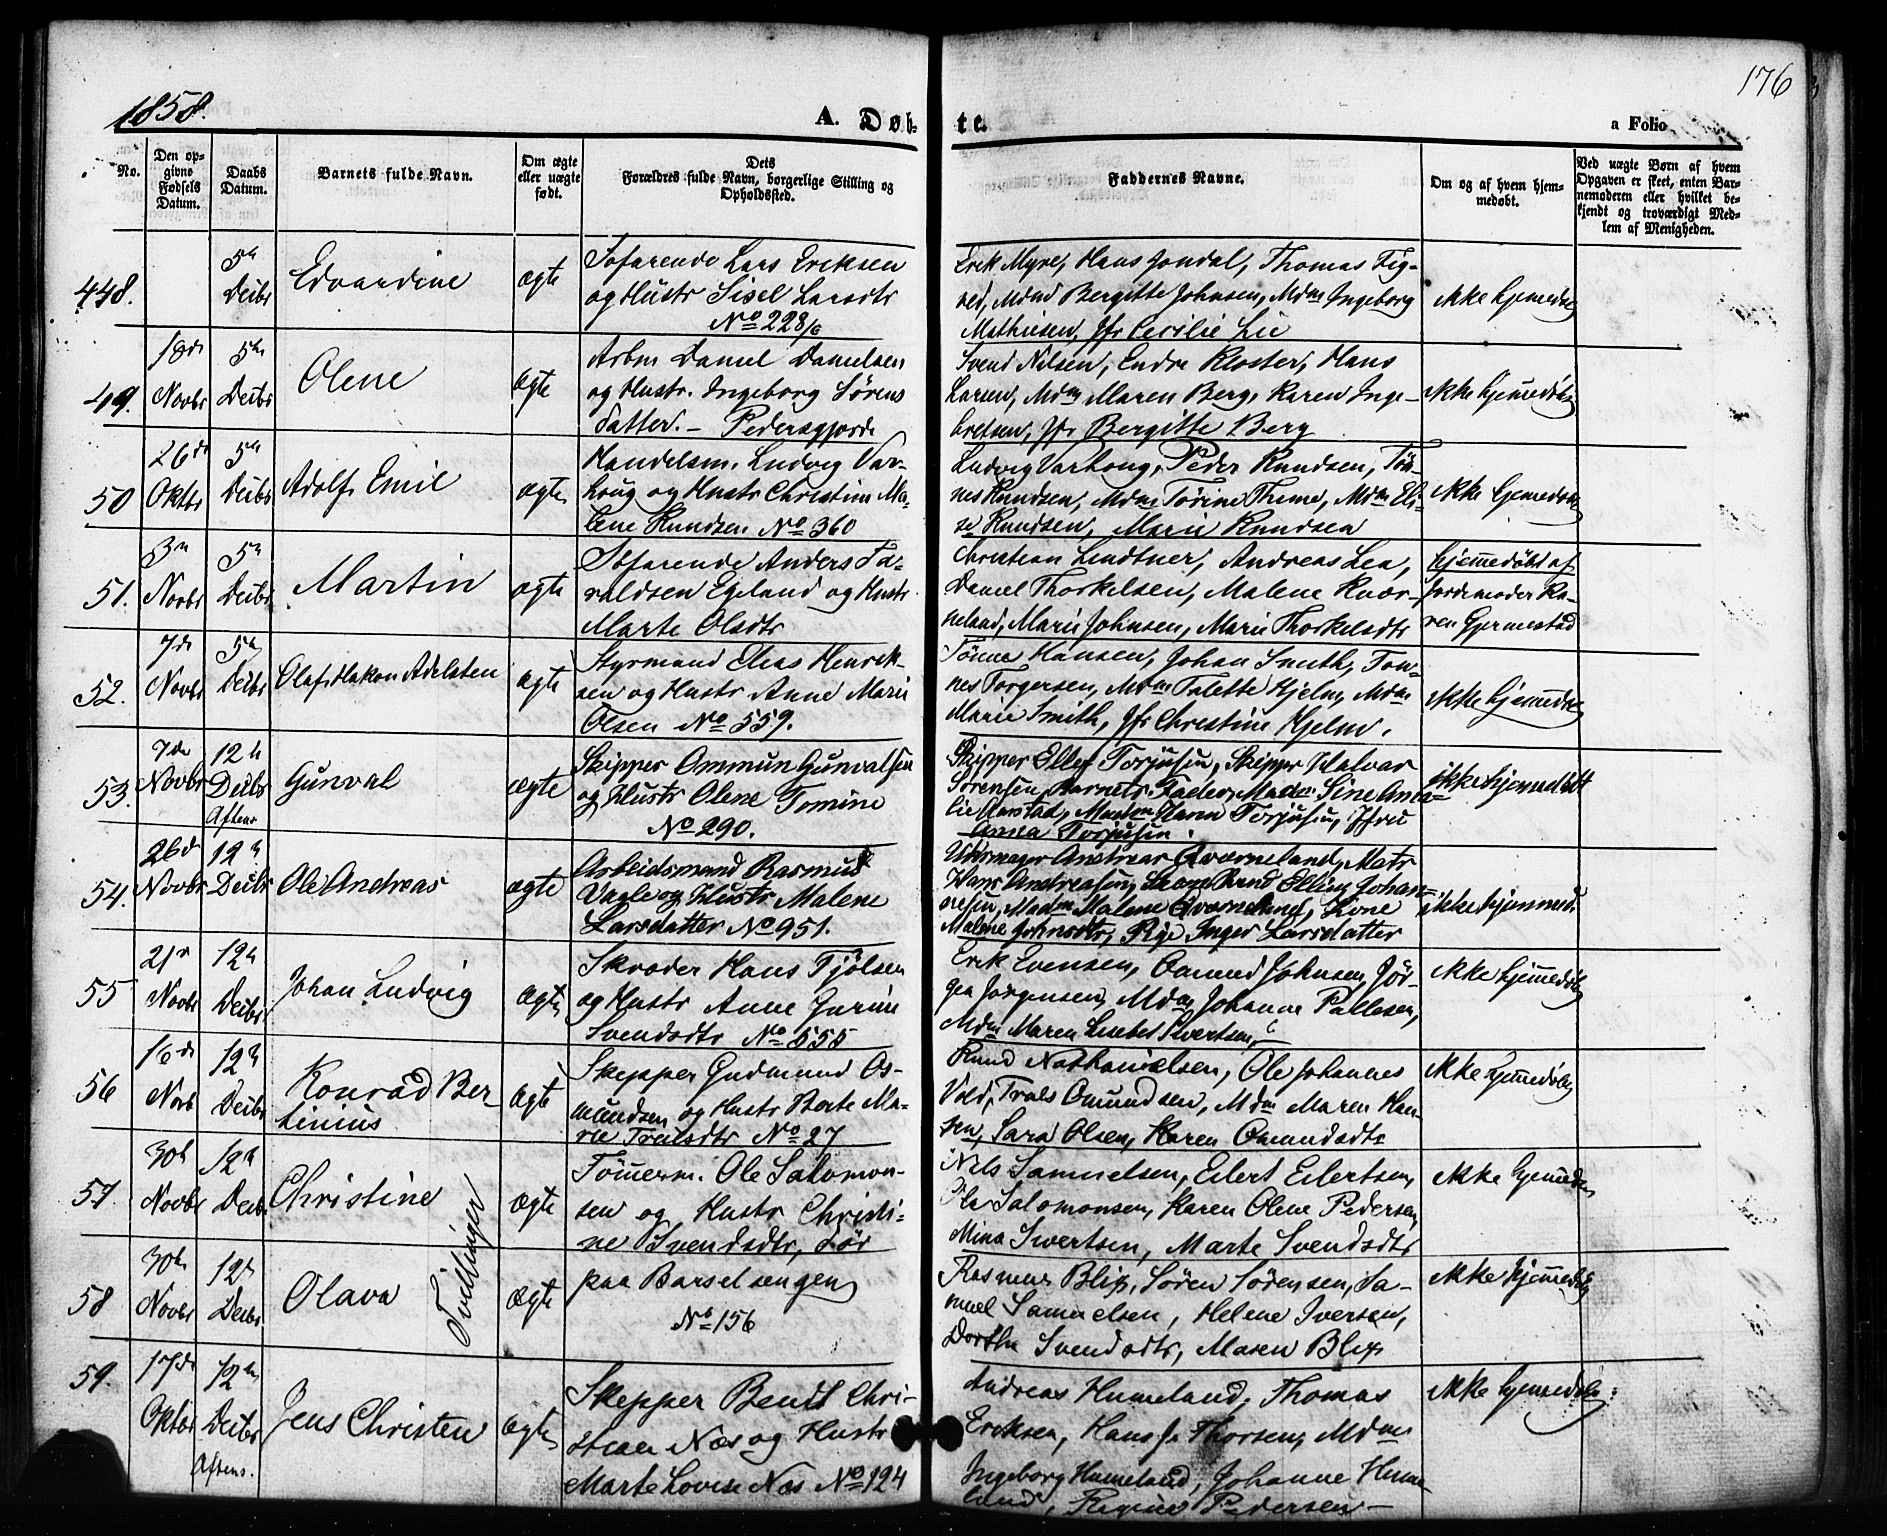 1858.
A. Døb-
te.
176
a Folio
No.
Den op-
givne
Fødsels
Datum.
Daabs
Datum.
Barnets fulde Navn.
Om ægte
eller uægte
født.
Dets
Forældres fulde Navn, borgerlige Stilling og
Opholdssted.
Faddernes Navne.
Om og af hvem hjem-
medøbt.
Ved uægte Børn af hvem
Opgaven er skeet, enten Bar-
nemoderen eller hvilket be-
kjendt og troværdigt Med-
lem af Menigheden.
448.
5te
Decbr
Edvardine
ægte
Søfarende Lars Eriksen
og Hustr Sisel Larsdtr
No 228/6
Erik Myre, Hans Jondal, Thomas Tig-
Mdm Bergitte Johnsen, Mdm Ingeborg
Mathiesen, Jfr Cecilie Lie
ikke hjemedøbt
49.
18de
Novbr
5te
Decbr
Olene
ægte
Arbm Daniel Danielsen
og Hustr. Ingeborg Sørens
datter. - Pedersgjerde
Svend Nilsen, Endre Kloster, Hans
Larsen, Mdm Maren Berg, Karen Inge-
bretsen, Jfr Bergitte Berg
ikke hjemedøbt
50
26de
Oktbr
5te
Decbr
Adolf Emil
ægte
Handelsm. Ludvig Var-
houg og Hustr Christine Ma-
lene Knudsen No 360
Ludvig Varhoug, Peder Knudsen, Tøn-
nes Knudsen, Mdm Tørine Thime, Mdm Eli-
se Knudsen, Marie Knudsen
ikke hjemedøbt
51.
3die
Novbr
5te
Decbr
Martin
ægte
Søfarende Anders Ta-
raldsen Egeland og Hustr
Marte Olsdtr
Christian Lindtner, Andreas Lea,
Daniel Thorkelsen, Malene Kvær-
neland, Marie Johnsen, Marie Thorkelsdtr
hjemedøbt af
Jordemoder Ka-
ren Gjermestad
52.
7de
Novbr
5te
Decbr
Olaf Hakon Adelsten
ægte
Styrmand Elias Henrik-
sen og Hustr Anne Marie
Olsen No 559.
Tønnes Hansen, Johan Smith, Tøn-
nes Torgersen, Mdm Talette Hjelm, Mdm
Marie Smith, Jfr Christine Hjelm.
ikke hjemedøbt
53.
7de
Novbr
12te
Decbr
Aftens
Gunval
ægte
Skipper Ommun Gunvalsen
og Hustr Olene Tomine
No 290.
Skipper Ellef Torjusen, Skipper Halvar
Sørensen, Barnets Fader, Madm Sine Ama-
lie Aarstad, Madm Karen Torjusen, Jfru
Anna Torjusen.
ikke hjemedøbt
54.
26de
Novbr
12te
Decbr
Ole Andreas
ægte
Arbeidsmand Rasmus
Vagle og Hustr Malene
Larsdatter No 951.
Uhrmager Andreas Qværneland, Matr
Hans Andreasen, Elling Johan-
nesen, Madm Malene Qværneland, Kone
Malene Johnsdtr, Pige Inger Larsdatter
ikke hjemmed.
55
21de
Novbr
12te
Decbr
Johan Ludvig
ægte
Skræder Hans Tjølsen
og Hustr Anne Gurine
Svendsdtr No 555
Erik Evensen, Omund Johnsen, Jør-
gen Jørgensen, Mdm Johanne Pallesen,
Mdm Maren Lisebet Sivertsen,
ikke hjemedøbt
56
16de
Novb
12te
Decbr
Konrad Ber-
tinius
ægte
Skipper Gudmund Os-
mundsen og Hustr Berte Ma-
rie Trulsdtr No 27
Knud Nathanielsen, Ole Johannes
Vold, Truls Omundsen, Mdm Maren Han-
sen, Sara Olsen, Karen Omundsdtr
ikke hjemedøbt
57
30te
Novbr
12te
Decbr
Christine
Tvillinger
ægte
Tømerm. Ole Salomon-
sen og Hustr Christi-
ne Svendsdtr, død
paa Barselsengen
No 156
Nils Samuelsen, Eilert Eilertsen,
Ole Salomonsen, Karen Olene Pedersen,
Mina Sivertsen, Marte Svendsdtr
ikke hjemedøbt
58
30te
Novbr
12te
Decbr
Olava
ægte
Rasmus Blix, Søren Sørensen, Sa-
muel Samuelsen, Helene Iversen,
Dorthe Svendsdtr, Maren Blix
ikke hjemedøbt
59.
17de
Oktbr
12te
Decbr
Aftens.
Jens Christen
ægte
Skipper Bendt Chri-
stian Næs og Hustr
Marte Lovise Næs No 124
Andreas Hummeland, Thomas
Eriksen, Hans J. Thorsen, Mdm
Ingeborg Hummeland, Johanne Humme-
land, Regine Pedersen -
ikke hjemedøbt